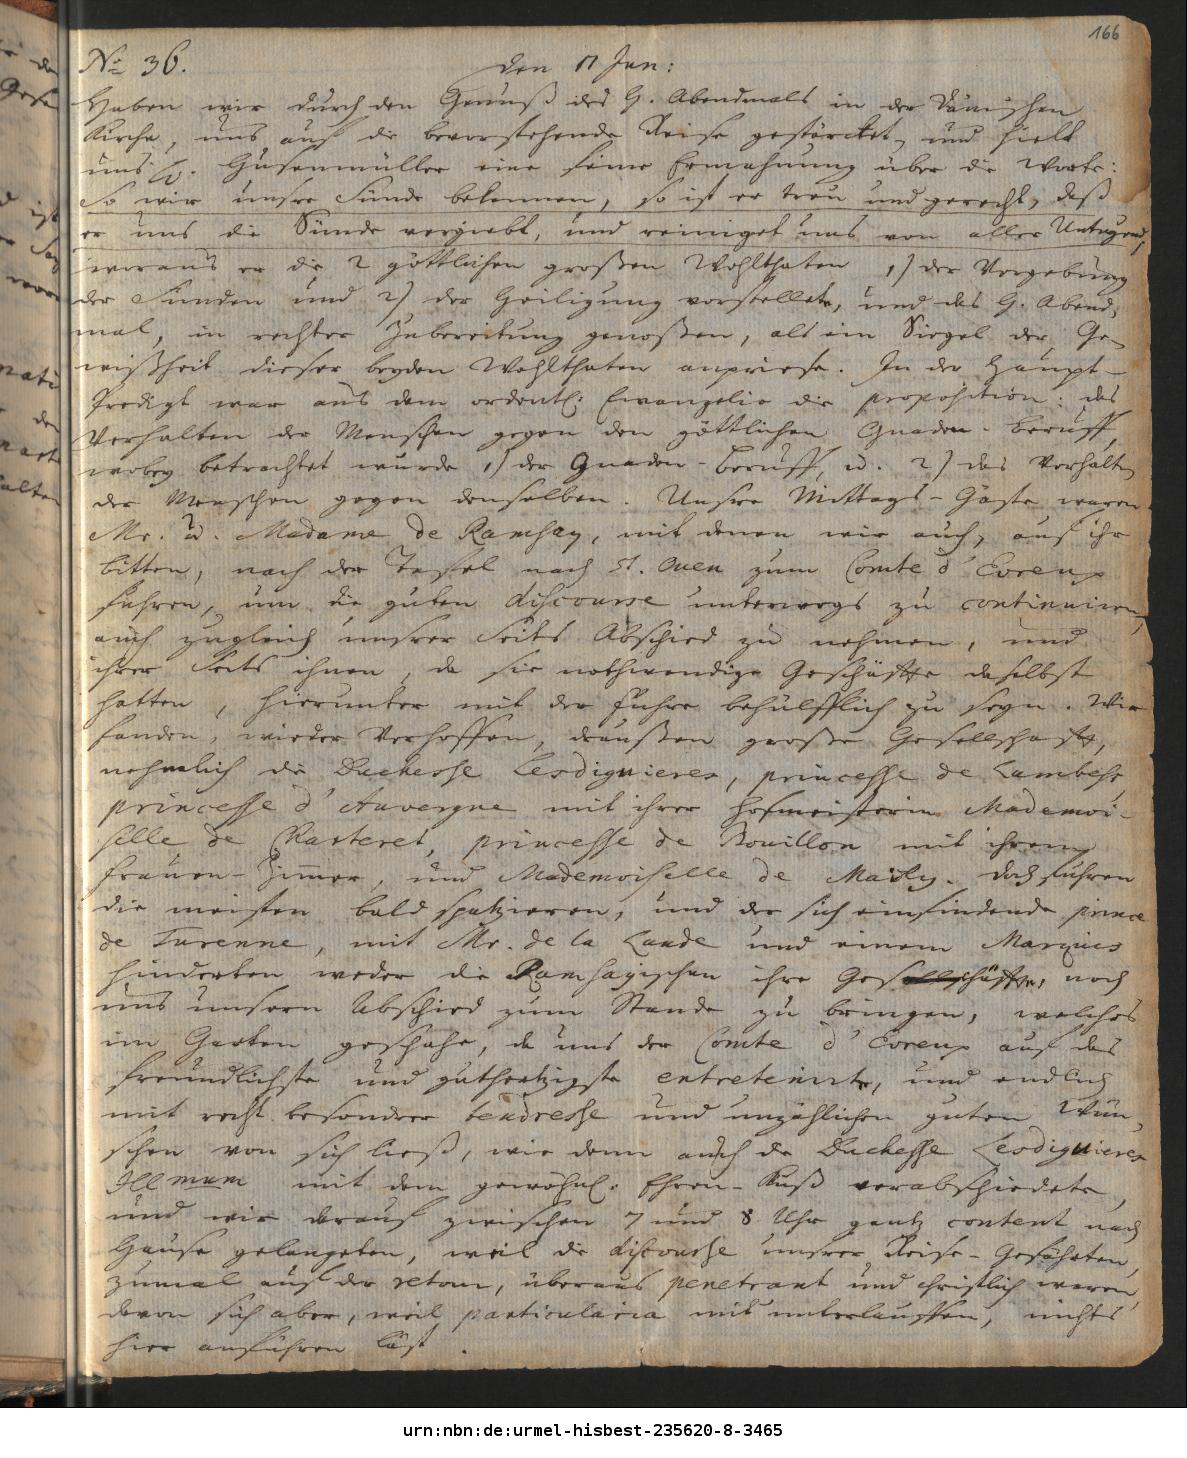 166
No 36. den 17 Jun:
Haben wir durch den Genuß des H. Abendmals in der Dänischen
Kirche, uns auf die bevorstehende Reise gestärcket, und hielt
uns H. Husenmüller eine feine Ermahnung über die Worte:
So wir unsre Sünde bekennen, so ist er treu und gerecht, daß
er uns die Sünde vergiebt, und reiniget uns von aller Untugend,
woraus er die 2 göttlichen großen Wohlthaten 1) der Vergebung
der Sünden und 2) der Heiligung vorstellete, und das H. Abend,
mal, in rechter Zubereitung genoßen, als ein Siegel der Ge-
wißheit dieser beyden Wohlthaten anpriese. In der Haupt-
Predigt war aus dem ordentl: Evangelio die proposition: das
Verhalten der Menschen gegen den göttlichen Gnaden-Beruff,
wobey betrachtet wurde 1) der Gnaden-Beruff, u. 2) das Verhalten
der Menschen gegen denselben. Unsre Mittags-Gäste waren
Mr. u. Madame de Ramsay, mit denen wir auch, auf ihr
bitten, nach der Tafel nach St. Ouen zum Comte d' Evreux
fuhren, um die guten discourse unterwegs zu continuiren,
auch zugleich unsrer Seits Abschied zu nehmen, und
ihrer Seits ihnen, da sie nothwendige Geschäffte daselbst
hatten, hierunter mit der Fuhre behülfflich zu seyn. Wir
fanden, wieder Verhoffen, draußen große Gesellschafft,
nehmlich die Duchesse Lesdiguieres, princesse de Lambesc,
princesse d' Auvergne mit ihrer Hofmeisterin Mademoi-
selle de Chasteret, princesse de Bouillon mit ihrem
Frauen-Zimmer, und Mademoiselle de Mailly. Doch fuhren
die meisten bald spatzieren, und der sich einfindende prince
de Turenne, mit Mr. de la Lande und einem Marquis
hinderten weder die Ramsayischen ihre Geschäffte, noch
uns unsern Abschied zum Stande zu bringen, welches
im Garten geschahe, da uns der Comte d' Evreux auf das
freundlichste und gutherzigste entretenirte, und endlich
mit recht besonderer tendresse und unzählichen guten Wün,
schen von sich ließ, wie denn auch die Duchesse Lesdiguieres
Illmum mit dem gewöhnl. Ehren-Kuß verabschiedete,
und wir darauf zwischen 7 und 8 Uhr gantz content nach
Hause gelangeten, weil die discourse unsrer Reise-Gefährten,
zumal auf der retour, überaus penetrant und christlich waren,
davon sich aber, weil particularia mit unterlauffen, nichts
hier anführen läst.
urn:nbn:de:urmel-hisbest-235620-8-3465